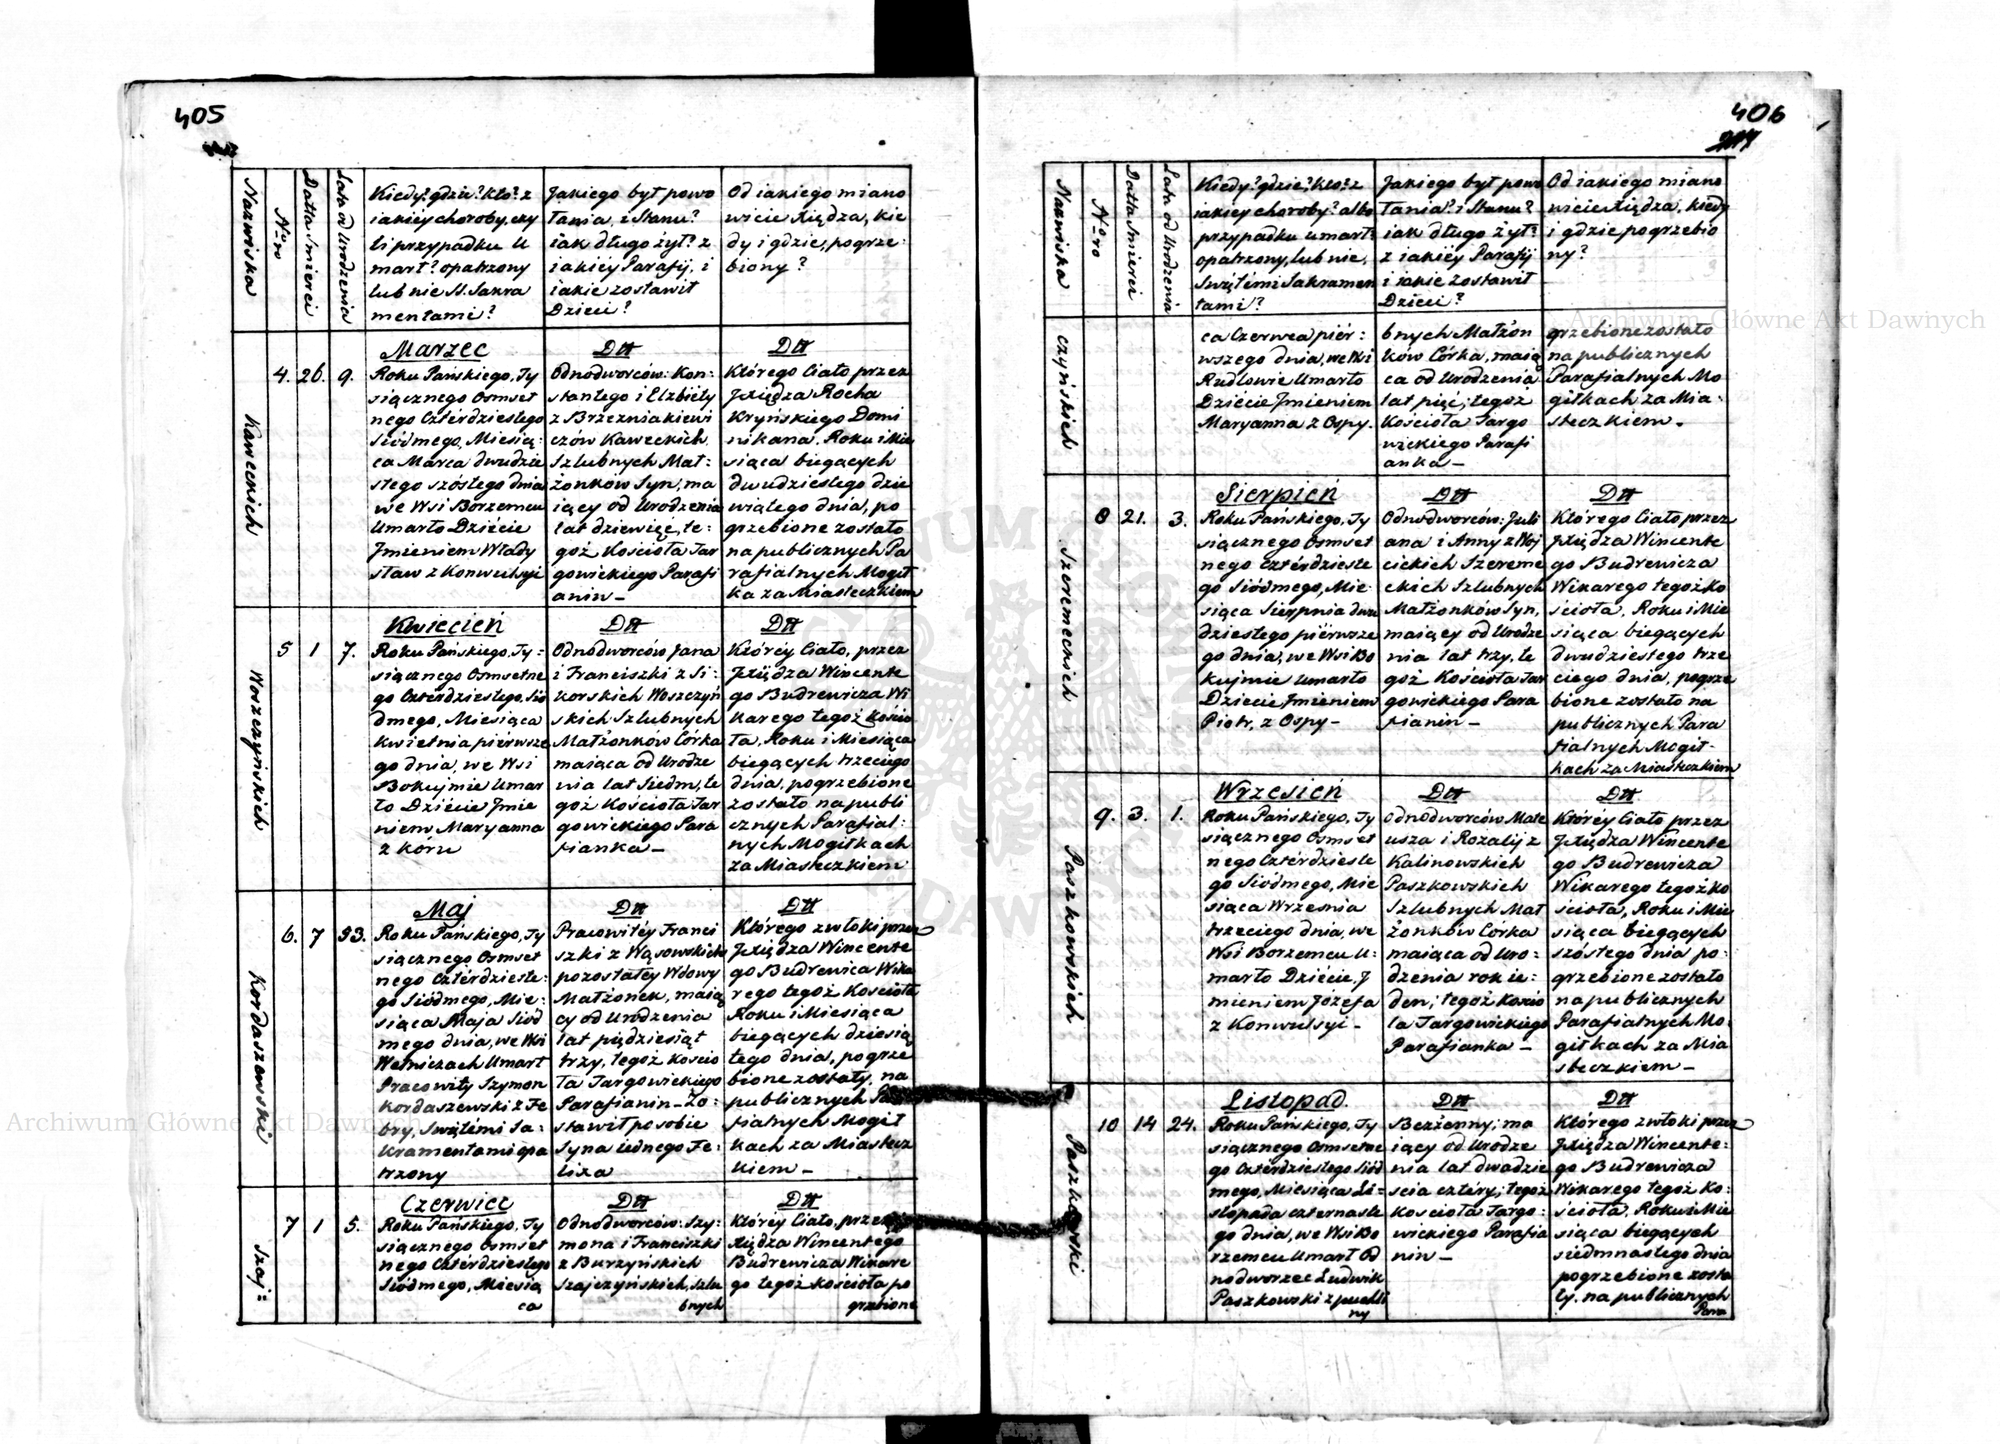 405
Nazwiska
Nro
Datta Śmierci
Lata od Urodzenia
Kiedy? gdzie? kto? z
iakiéy choroby, czy
li przypadku U
marł? opatrzony
lub nie SS. Sakra
mentami?
Jakiego był powo
łania i Stanu?
iak długo żył? z
iakiéy Parafij, i
iakie zostawił
Dzieci?
Od iakiego miano
wicie Xiędza, kie
dy i gdzie, pogrze-
biony?
Kaweckich
4. 26. 9.
Marzec
Roku Pańskiego, Ty
siącznego Osmset
nego Cztérdziestego
Siódmego, Miesią:
ca Marca dwudzie
stego szóstego dnia
we Wsi Borzemcu
Umarło Dziécie
Jmieniem Włady
sław z Konwulsyi
Dtt
Odnodworców: Kon:
stantego i Elżbiéty
z Brzezniakiewi
czów Kaweckich
Szlubnych Mał:
żonków Syn, ma
iący od Urodzenia
lat dziewięć, te:
goż Kościoła Tar
gowickiego Parafi
anin_
Dtt
Którego Ciało przez
Jxiędza Rocha
Kryńskiego Domi
nikana. Roku i Mie
siąca biegących
dwudziestego dzie
wiątego dnia, po
grzebione zostało
na publicznych Pa
rafialnych Mogił
ka za Miasteczkiem
Woszczyńskich
5 1 7.
Kwiecień
Roku Pańskiego, Ty:
siącznego Osmsetne
go Cztérdziestego Sió
dmego, Miesiąca
Kwietnia piérwsze
go dnia, we Wsi
Bokujmie Umar
ło Dziécie Jmie
niem, Maryanna
z koru
Dtt
Odnodworców Jana
i Franciszki z Si:
korskich Woszczyń
skich Szlubnych
Małżonków Córka
maiąca od Urodze
nia lat Siedm, te
goż Kościoła Tar
gowickiego Para
fianka_
Dtt
Któréy Ciało, przez
Jxiędza Wincente
go Budrewicza Wi
karego tegoż Kościo
ła, Roku i Miesiąca
biegących trzeciego
dnia, pogrzebione
zostało na publi
cznych Parafial:
nych Mogiłkach
za Miasteczkiem
Kordaszewski
6. 7 53.
Maj
Roku Pańskiego, Ty
siącznego Osmset
nego Cztérdzieste:
go Siódmego, Mie:
siąca Maja Siód
mego dnia, we Wsi
Wełniczach Umarł
Pracowity Szymon
Kordaszewski z Fe
bry, Swiętemi Sa:
kramentami opa
trzony
Dtt
Pracowitéy Franci
szki z Wąsowskich
pozostałéy Wdowy
Małżonek, maią
cy od Urodzenia
lat pięćdziesiąt
trzy, tegoż Kościo
ła Targowickiego
Parafianin_Zo:
stawił po sobie
Syna iednego Fe:
lixa
Dtt
Którego zwłoki przez
Jxiędza Wincente
go Budrewica Wika
rego tegoż Kościoła
Roku i Miesiąca
biegących dziesią
tego dnia, pogrze
bione zostały, na
publicznych Pa
fialnych Mogił
kach za Miastecz
kiem_
Szaj=
7 1 5.
Czerwiec
Roku Pańskiego, Ty
siącznego Osmset
nego Cztérdziestego
Siódmego, Miesią
ca
Dtt
Odnodworców: Szy:
mona i Franciszki
z Burzyńskich
Szajczyńskich, Szlu
bnych
Dtt
Któréy Ciało, przez
Xiędza Wincentego
Budrewicza Wikare
go tegoż Kościoła po
grzebione
406
Nazwiska
Nro
Datta Śmierci
Lata od Urodzenia
Kiedy? gdzie? kto? z
iakiéy choroby? albo
przypadku umarł?
opatrzony, lub nie,
Swiętémi Sakramen
tami?
Jakiego był powo
łania? i Stanu?
iak długo żył?
z iakiéy Parafij
i iakie zostawił
Dzieci?
Od iakiego miano
wicie Xiędza, kiedy
i gdzie pogrzebio
ny?
czyńskich
ca Czerwca piér:
wszego dnia, we Wsi
Rudlowie Umarło
Dziécie Jmieniem
Maryanna z Ospy.
bnych Małżon
ków Córka, maią
ca od Urodzenia
lat pięć, tegoż
Kościoła Targo
wickiego Parafi
anka_
grzebione zostało
na publicznych
Parafialnych Mo
giłkach za Mia-
steczkiem_
Szeremeckich
8 21. 3.
Sierpień
Roku Pańskiego, Ty
siącznego Osmset
nego Cztérdzieste
go Siódmego, Mie
siąca Sierpnia dwu
dziestego piérwsze
go dnia, we Wsi Bo
kujmie Umarło
Dziecie Jmieniem
Piotr, z Ospy_
Dtt
Odnodworców: Juli
ana i Anny z Woj
cickich Szereme
ckich Szlubnych
Małżonków Syn,
maiący od Urodze
nia lat trzy, te
goż Kościoła Tar
gowickiego Para
fianin_
Dtt
Którego Ciało przez
Jxiędza Wincente
go Budrewicza
Wikarego tegoż Ko
ścioła, Roku i Mie
siąca biegących
dwudziestego trze
ciego dnia, pogrze
bione zostało na
publicznych Para
fialnych Mogił-
kach za Miasteczkiem
Paszkowskich
9. 3. 1.
Wrzesień
Roku Pańskiego, Ty
siącznego Osmset
nego Cztérdzieste
go Siódmego, Mie
siąca Września
trzeciego dnia, we
Wsi Borzemcu U:
marło Dziécie, J
mieniem Józefa
z Konwulsyi_
Dtt
Odnodworców Mate
usza i Rozalij z
Kalinowskich
Paszkowskich
Szlubnych Mał
żonków Córka
maiąca od Uro:
dzenia rok ie:
den; tegoż Kościo
ła Targowickiego
Parafianka_
Dtt
Któréy Ciało przez
Jxiędza Wincente
go Budrewicza
Wikarego tegoż Ko
ścioła, Roku i Mie
siąca biegących
szóstego dnia po:
grzebione zostało
na publicznych
Parafialnych Mo:
giłkach za Mia
steczkiem_
Paszkowski
10 14 24.
Listopad.
Roku Pańskiego, Ty
siącznego Osmsetne
go Cztérdziestego Siód
mego, Miesiąca Li=
stopada czternaste
go dnia, we Wsi Bo
rzemcu Umarł Od
nodworzec Ludwik
Paszkowski z puchli
ny
Dtt
Bezżenny; ma
iący od Urodze
nia lat dwadzie
ścia cztéry; tegoż
Kościoła Targo:
wickiego Parafia
nin_
Dtt
Którego zwłoki przez
Jxiędza Wincente:
go Budrewicza
Wikarego tegoż Ko:
ścioła, Roku i Mie
siąca biegących
siedmnastego dnia
pogrzebione zosta
ły. na publicznych
Para
Archiwum Główne Akt Dawnych
Archiwum Główne Akt Dawnych